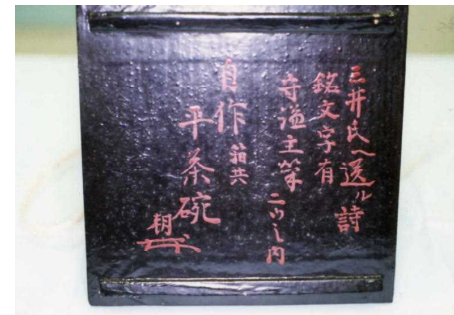 三井氏へ送ル詩
銘文字有
守謐主筆 二ツ之内
自作 箱共
平茶碗